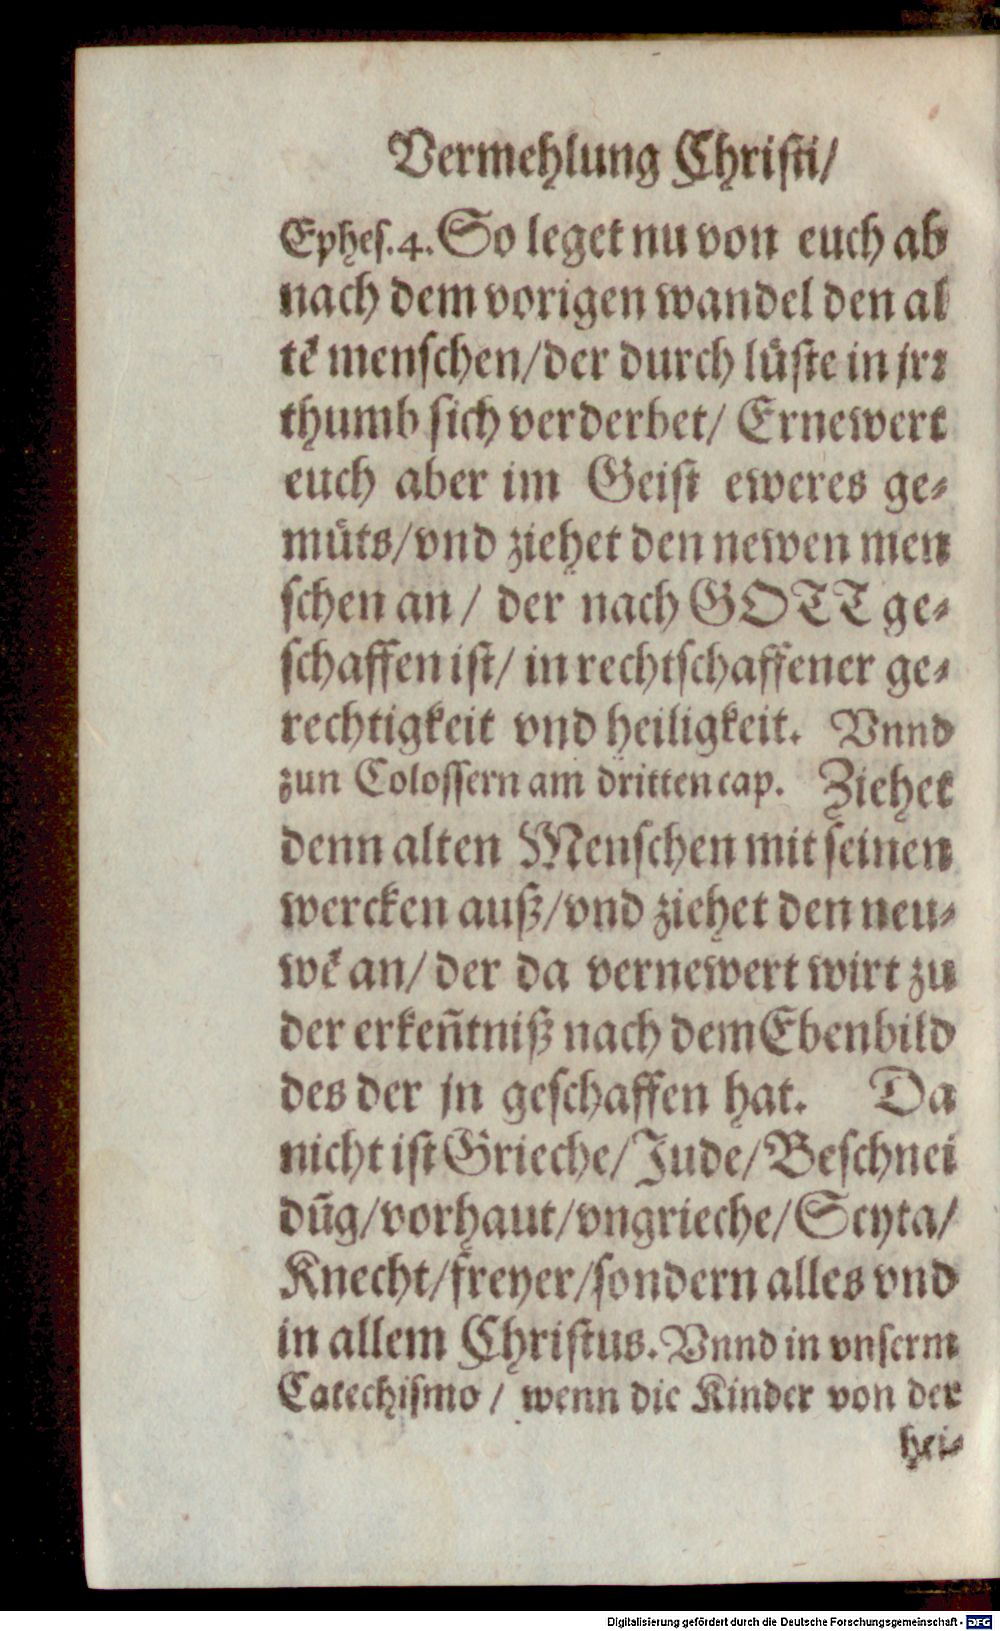 Vermehlung Christi/
Ephes. 4. So leget nu von euch ab
nach dem vorigen wandel den al
tē menschen/der durch lüste in jrꝛ
thumb sich verderbet/ Ernewert
euch aber im Geist eweres ge-
müts/vnd ziehet den newen men
schen an/ der nach GOTT ge-
schaffen ist/ in rechtschaffener ge-
rechtigkeit vnd heiligkeit. Vnnd
zun Colossern am dritten cap. Ziehet
denn alten Menschen mit seinen
wercken auß/vnd ziehet den neu-
wē an/ der da vernewert wirt zu
der erkeñtniß nach dem Ebenbild
des der jn geschaffen hat. Da
nicht ist Grieche/Jude/Beschnei
dūg/vorhaut/vngrieche/Scyta/
Knecht/freyer/sondern alles vnd
in allem Christus. Vnnd in vnserm
Catechismo/ wenn die Kinder von der
hei-
Digitalisierung gefördert durch die Deutsche Forschungsgemeinschaft - DFG